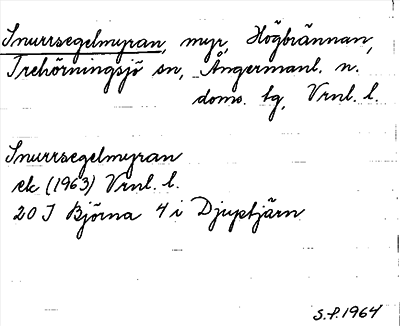 Snurrsegelmyran, myr, Högbrännan,
Trehörningsjö sn, Ångermanl. n.
doms. lg, Vrnl. l.
Snurrsegelmyran
ek (1963) Vrnl. l.
20 I Björna 4 i Djuptjärn
S.f. 1964